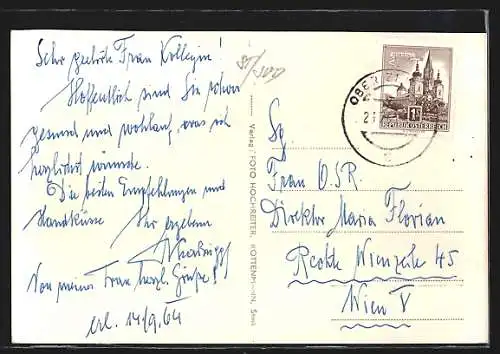 Sehr geehrte Frau Kollegin!
Hoffentlich sind Sie schon
gesund und wohlauf, was ich
herzlichst wünsche.
Die besten Empfehlungen und
Handküsse Ihr ergebener
Von meiner Frau herzl. Grüße!
erl. 14/9.64
Verlag: FOTO HOCHREITER,
REPUBLIK ÖSTERREICH
OBER
Frau O.S.R.
Direktor Maria Florian
Rechte Wienzeile 45
Wien V